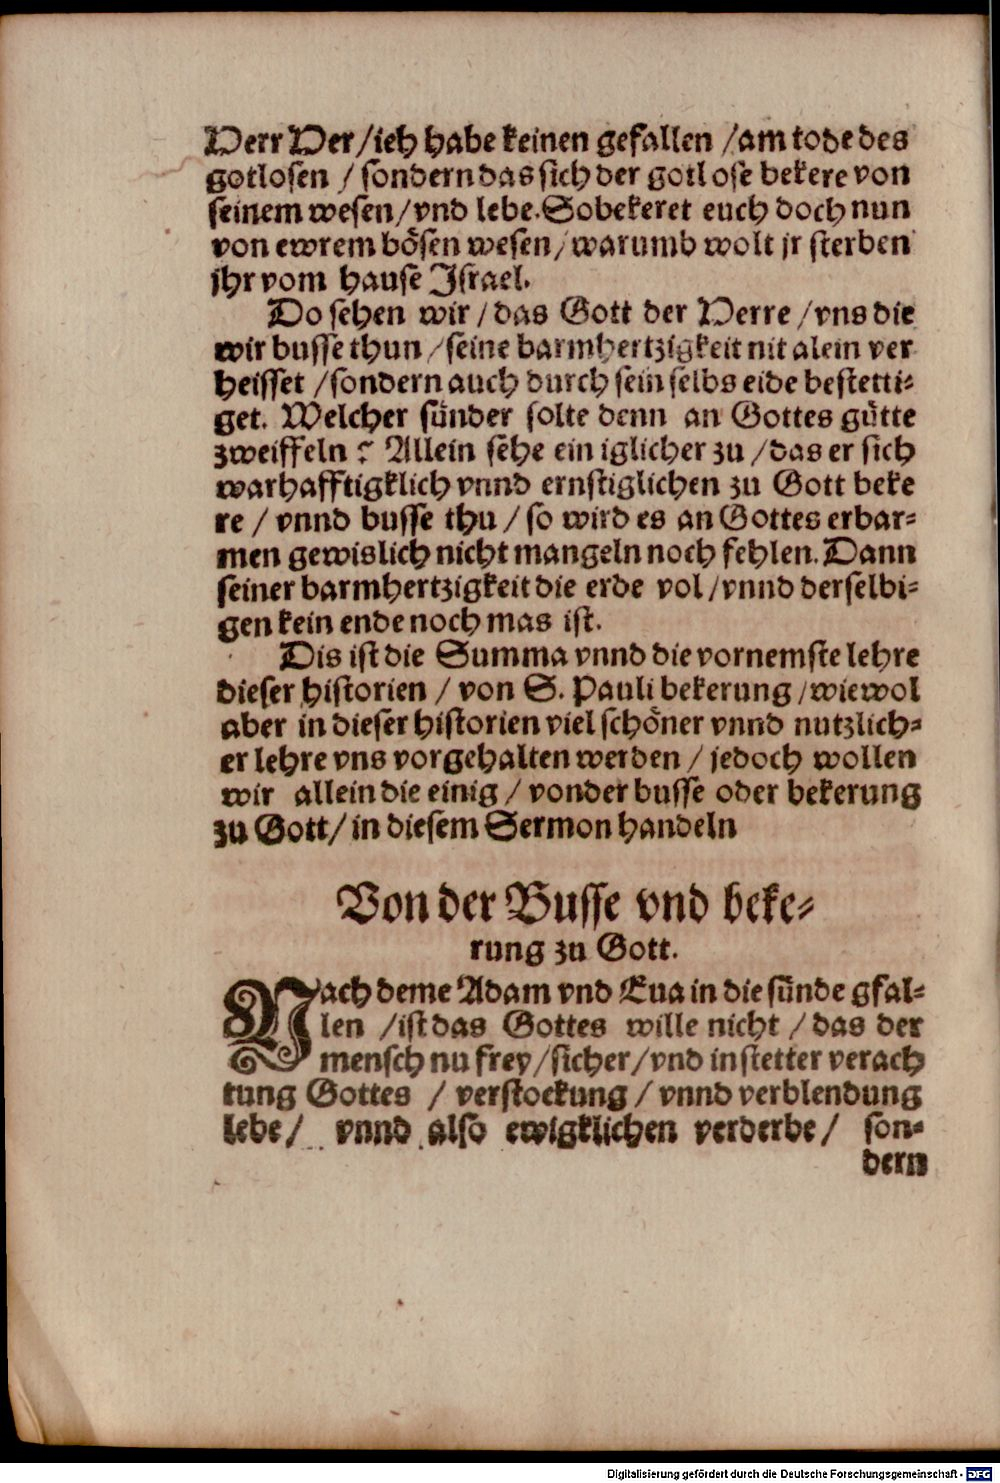 Herr Her / ich habe keinen gefallen / am tode des
gotlosen / sondern das sich der gotlose bekere von
seinem wesen / vnd lebe. So bekeret euch doch nun
von ewrem bösen wesen / warumb wolt jr sterben
jhr vom hause Israel.
Do sehen wir / das Gott der Herre / vns die
wir busse thun / seine barmhertzigkeit nit alein ver
heisset / sondern auch durch sein selbs eide bestetti⸗
get. Welcher sünder solte denn an Gottes gütte
zweiffeln? Allein sehe ein iglicher zu / das er sich
warhafftigklich vnnd ernstiglichen zu Gott beke
re / vnnd busse thu / so wird es an Gottes erbar⸗
men gewislich nicht mangeln noch fehlen. Dann
seiner barmhertzigkeit die erde vol / vnnd derselbi⸗
gen kein ende noch mas ist.
Dis ist die Summa vnnd die vornemste lehre
dieser historien / von S. Pauli bekerung / wiewol
aber in dieser historien viel schöner vnnd nutzlich⸗
er lehre vns vorgehalten werden / jedoch wollen
wir allein die einig / von der busse oder bekerung
zu Gott / in diesem Sermon handeln
Von der Busse vnd beke⸗
rung zu Gott.
Nach deme Adam vnd Eua in die sünde gfal⸗
len / ist das Gottes wille nicht / das der
mensch nu frey / sicher / vnd in stetter verach
tung Gottes / verstockung / vnnd verblendung
lebe / vnnd also ewigklichen verderbe / son⸗
dern
Digitalisierung gefördert durch die Deutsche Forschungsgemeinschaft - DFG